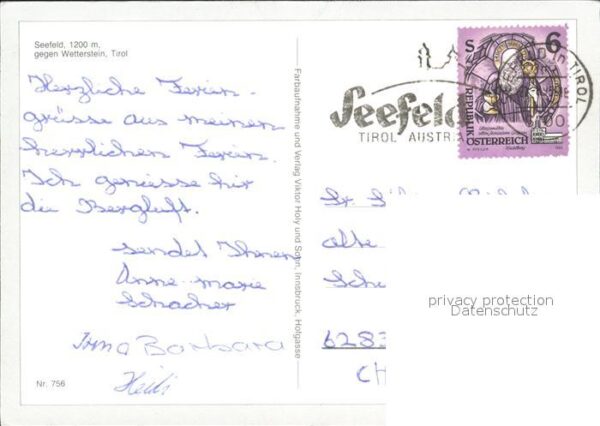 Seefeld, 1200 m,
gegen Wetterstein, Tirol
Herzliche Ferien-
grüsse aus meinen
herrlichen Ferien.
Ich geniesse hir
die Bergluft.
sendet Ihnen
Anne-marie
Schacher
Irma Barbara
Heidi
Nr. 756
Farbaufnahme und Verlag Viktor Holy und Sohn, Innsbruck, Hofgasse
Seefeld
TIROL AUSTR
IN TIROL
6100
S 6
REPUBLIK
ÖSTERREICH
alte
6283
CH
privacy protection
Datenschutz